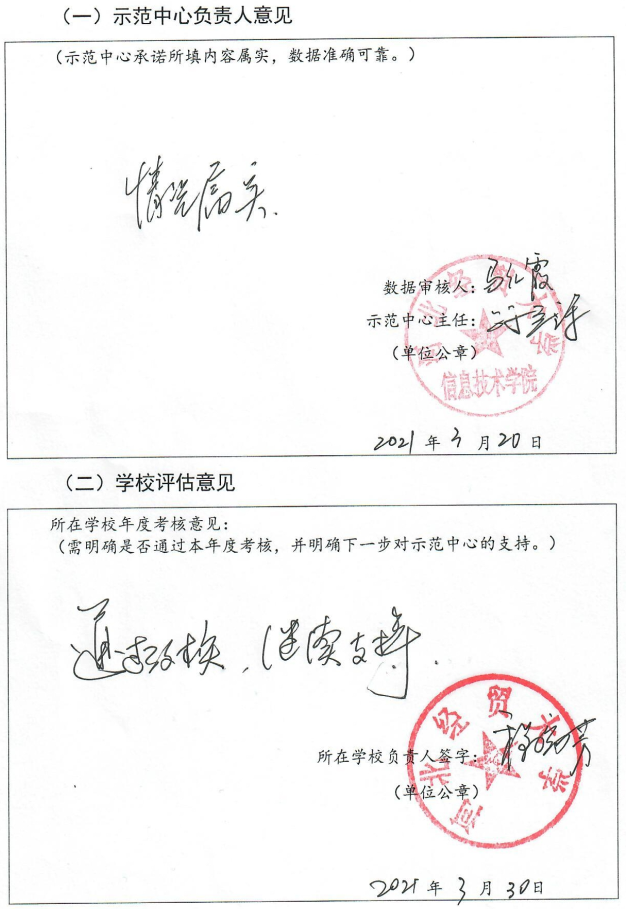 （一）示范中心负责人意见
（示范中心承诺所填内容属实，数据准确可靠。）
情况属实.
数据审核人：
示范中心主任：
（单位公章）
河北经贸大学
信息技术学院
2021 年 3 月 20 日
（二）学校评估意见
所在学校年度考核意见：
（需明确是否通过本年度考核，并明确下一步对示范中心的支持。）
通过考核，继续支持.
河北经贸大学
所在学校负责人签字：
（单位公章）
2021 年 3 月 30 日